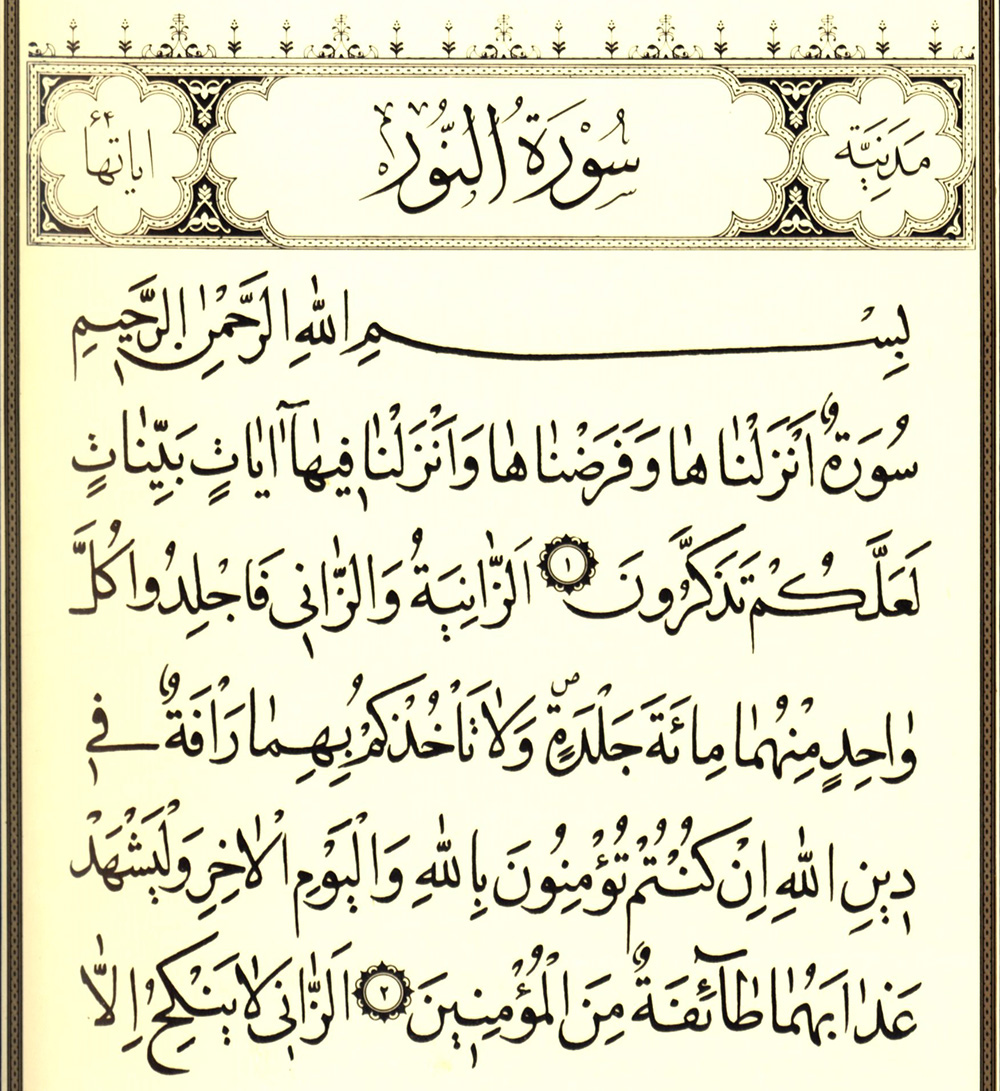 مَدَنِيَّة
سُوْرَةُ النُّوْرِ
اياتها ۶۴
بِسْمِ اللهِ الرَّحْمٰنِ الرَّحٖيمِ
سُورَةٌ اَنْزَلْنٰاهٰا وَفَرَضْنٰاهٰا وَاَنْزَلْنٰا فٖيهٰآ اٰيٰاتٍ بَيِّنٰاتٍ
لَعَلَّكُمْ تَذَكَّرُونَ ١ اَلزّٰانِيَةُ وَالزّٰانٖى فَاجْلِدُوا كُلَّ
وٰاحِدٍ مِنْهُمٰا مِائَةَ جَلْدَةٍۖ وَلٰا تَأْخُذْكُمْ بِهِمٰا رَاْفَةٌ فٖى
دٖينِ اللهِ اِنْ كُنْتُمْ تُؤْمِنُونَ بِاللهِ وَالْيَوْمِ الْاٰخِرِ وَلْيَشْهَدْ
عَذٰابَهُمٰا طٰآئِفَةٌ مِنَ الْمُؤْمِنٖينَ ٢ اَلزّٰانٖى لٰا يَنْكِحُ اِلّٰا